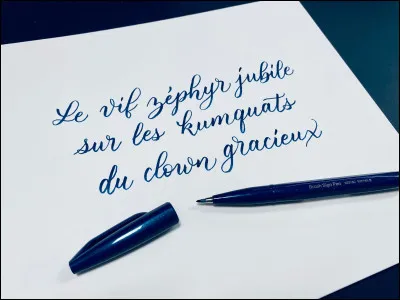 Le vif zéphyr jubile
sur les kumquats
du clown gracieux
Brush Sign Pen